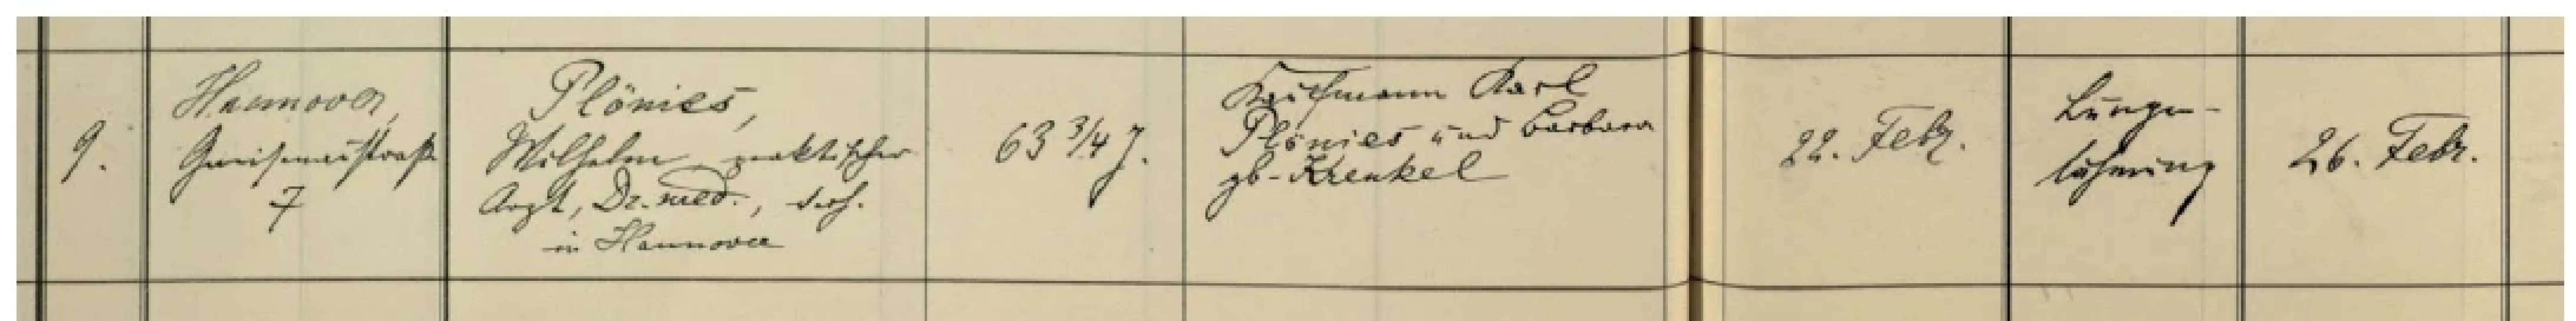 9.
Hannover,
Gneisenaustraße
7
Plönies,
Wilhelm praktischer
Arzt, Dr. med.,
in Hannover
63 3/4 J.
Kaufmann Karl
Plönies und Barbara
gb. Krenkel
22. Febr.
Lungen-
lähmung
26. Febr.